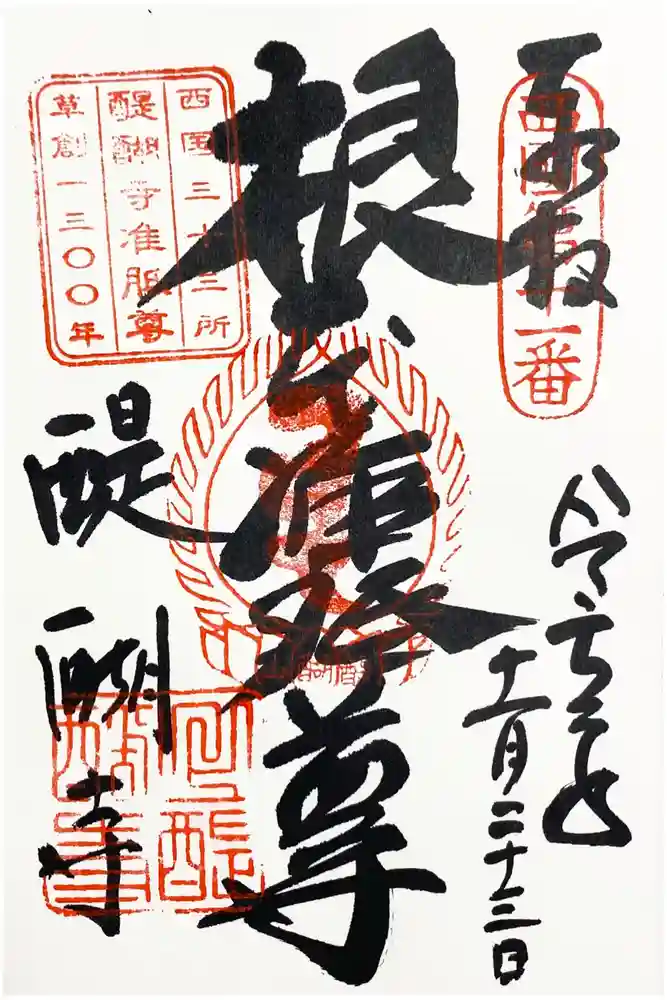 奉拝
西國第十一番
令和元年
十一月二十三日
根本准胝尊
醍醐寺
西国三十三所
醍醐寺准胝尊
草創一三〇〇年